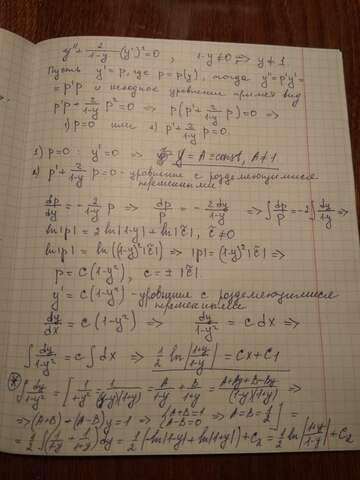 y'' + 2/(1-y) (y')² = 0 , 1-y ≠ 0 ⇒ y ≠ 1
Пусть y' = p, где p = p(y), тогда y'' = p'y' =
= p'p и исходное уравнение примет вид
p'p + 2/(1-y) p² = 0 ⇒ p(p' + 2/(1-y) p) = 0 ⇒
1) p = 0 или 2) p' + 2/(1-y) p = 0.
1) p = 0 : y' = 0 ⇒ y = A = const, A ≠ 1
2) p' + 2/(1-y) p = 0 - уравнение с разделяющимися
переменными
dp/dy = - 2/(1-y) p ⇒ dp/p = - 2dy/(1-y) ⇒ ∫ dp/p = -2 ∫ dy/(1-y) ⇒
ln|p| = 2 ln|1-y| + ln|c̃|, c̃ ≠ 0
ln|p| = ln((1-y)²|c̃|) ⇒ |p| = (1-y)²|c̃| ⇒
p = C(1-y²), c = ± |c̃|.
y' = C(1-y²) - уравнение с разделяющимися
переменными
dy/dx = c(1-y²) ⇒ dy/(1-y²) = c dx ⇒
∫ dy/(1-y²) = c ∫ dx ⇒ 1/2 ln|(1+y)/(1-y)| = Cx + C₁
⊛ ∫ dy/(1-y²) = [ 1/(1-y²) = 1/((1-y)(1+y)) = A/(1-y) + B/(1+y) = (A+Ay+B-By)/((1-y)(1+y)) ⇒
⇒ (A+B) + (A-B)y = 1 ⇒ {A+B=1 A-B=0 ⇒ A=B=1/2 ] =
= 1/2 ∫ (1/(1-y) + 1/(1+y)) dy = 1/2 (-ln|1-y| + ln|1+y|) + C₂ = 1/2 ln|(1+y)/(1-y)| + C₂